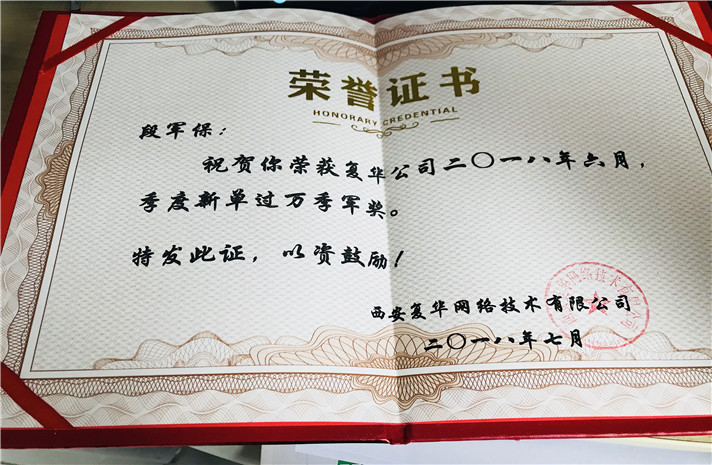 荣誉证书
HONORARY CREDENTIAL
段军保：
祝贺你荣获复华公司二〇一八年六月，
季度新单过万季军奖。
特发此证，以资鼓励！
西安复华网络技术有限公司
二〇一八年七月